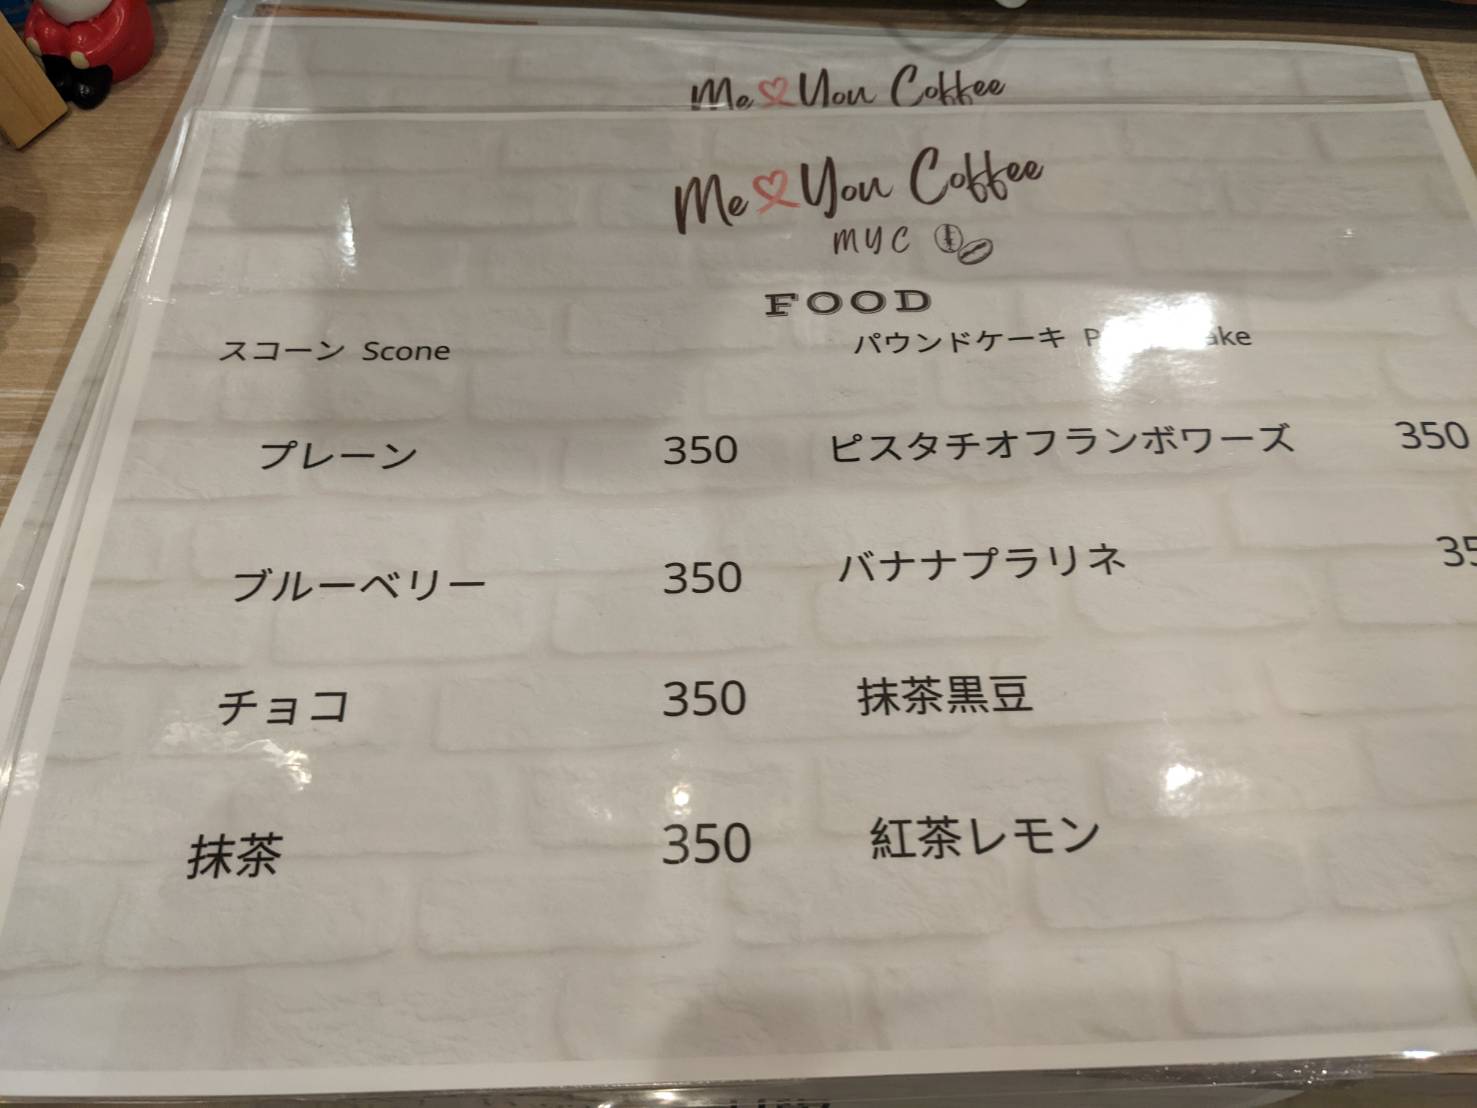 Me You Coffee
Me You Coffee
MYC
FOOD
スコーン Scone
プレーン 350
ブルーベリー 350
チョコ 350
抹茶 350
パウンドケーキ
ピスタチオフランボワーズ 350
バナナプラリネ
抹茶黒豆
紅茶レモン